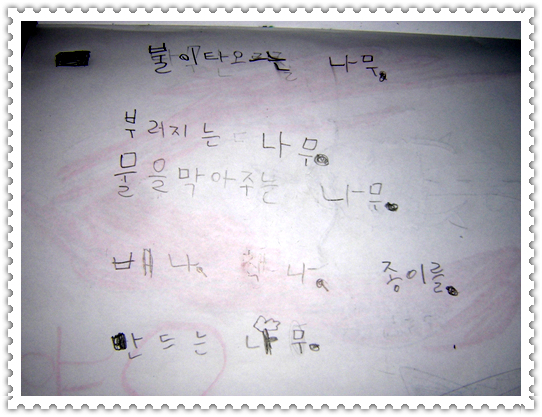 불이타오르는 나무.
부러지는 나무.
물을막아주는 나무.
배나. 종이를.
만드는 나무.